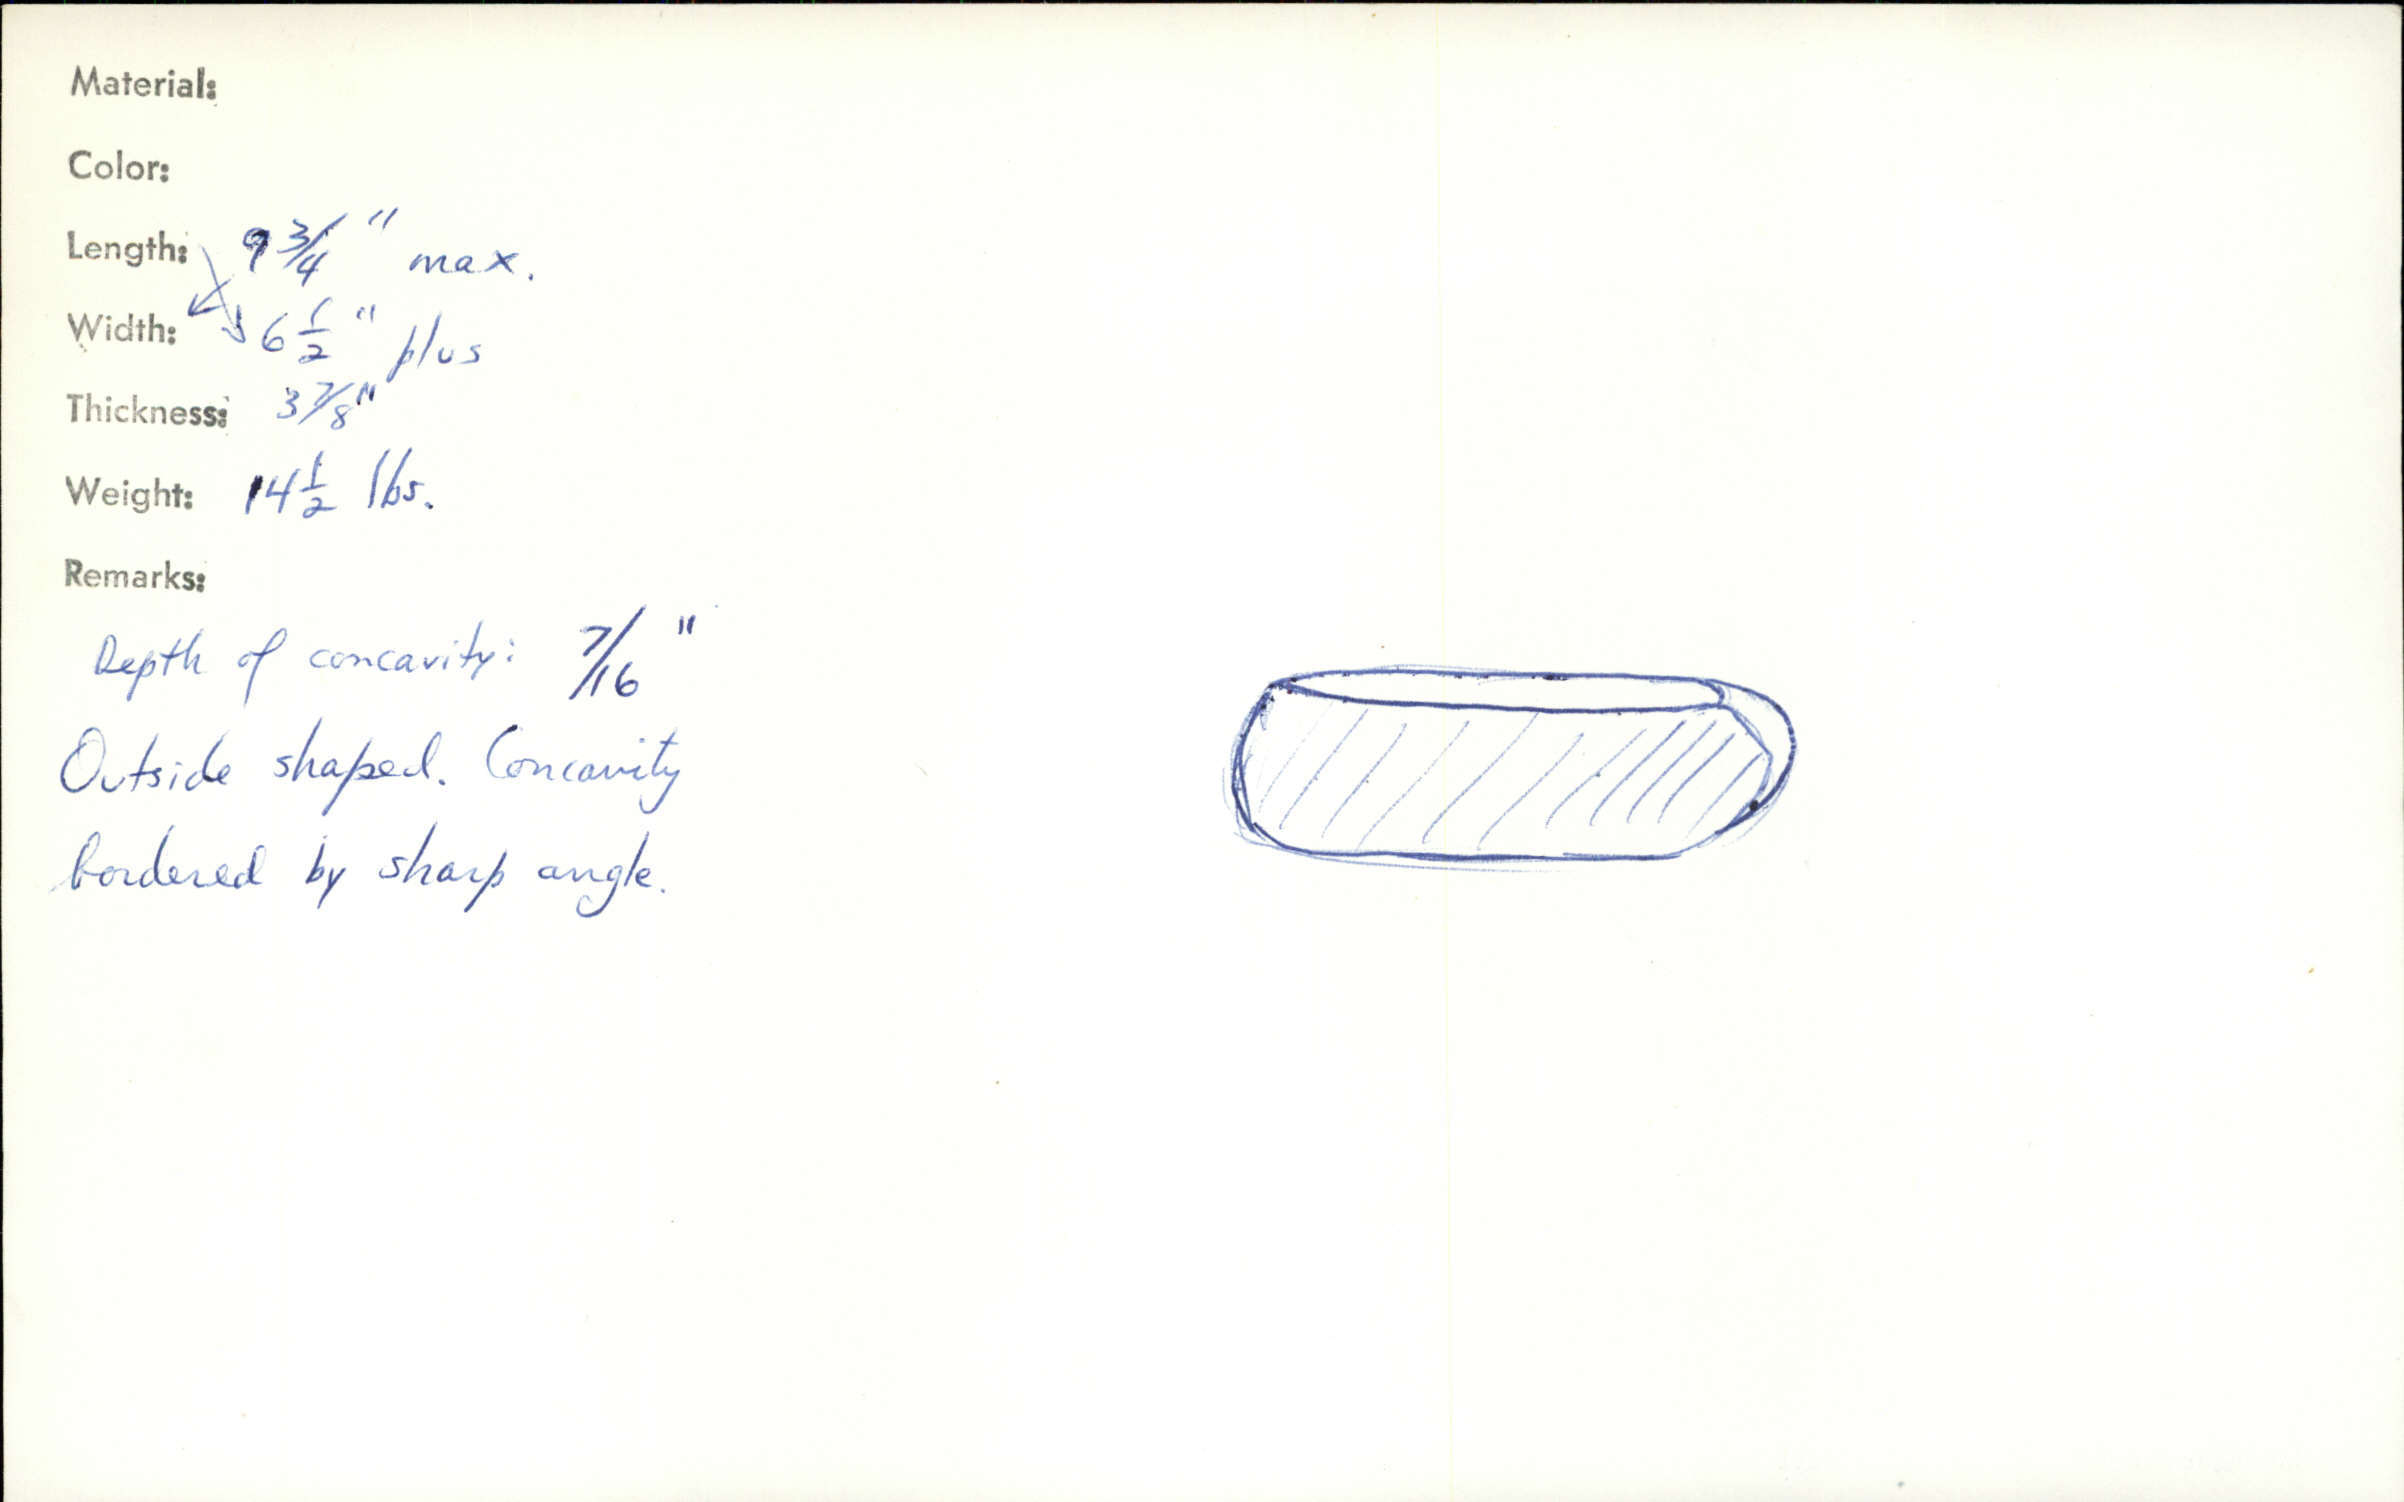 Material:
Color:
Length: 9 3/4 " max.
Width: 6 1/2 " plus
Thickness: 3 7/8"
Weight: 14 1/2 lbs.
Remarks:
Depth of concavity: 7/16 "
Outside shaped. Concavity
bordered by sharp angle.